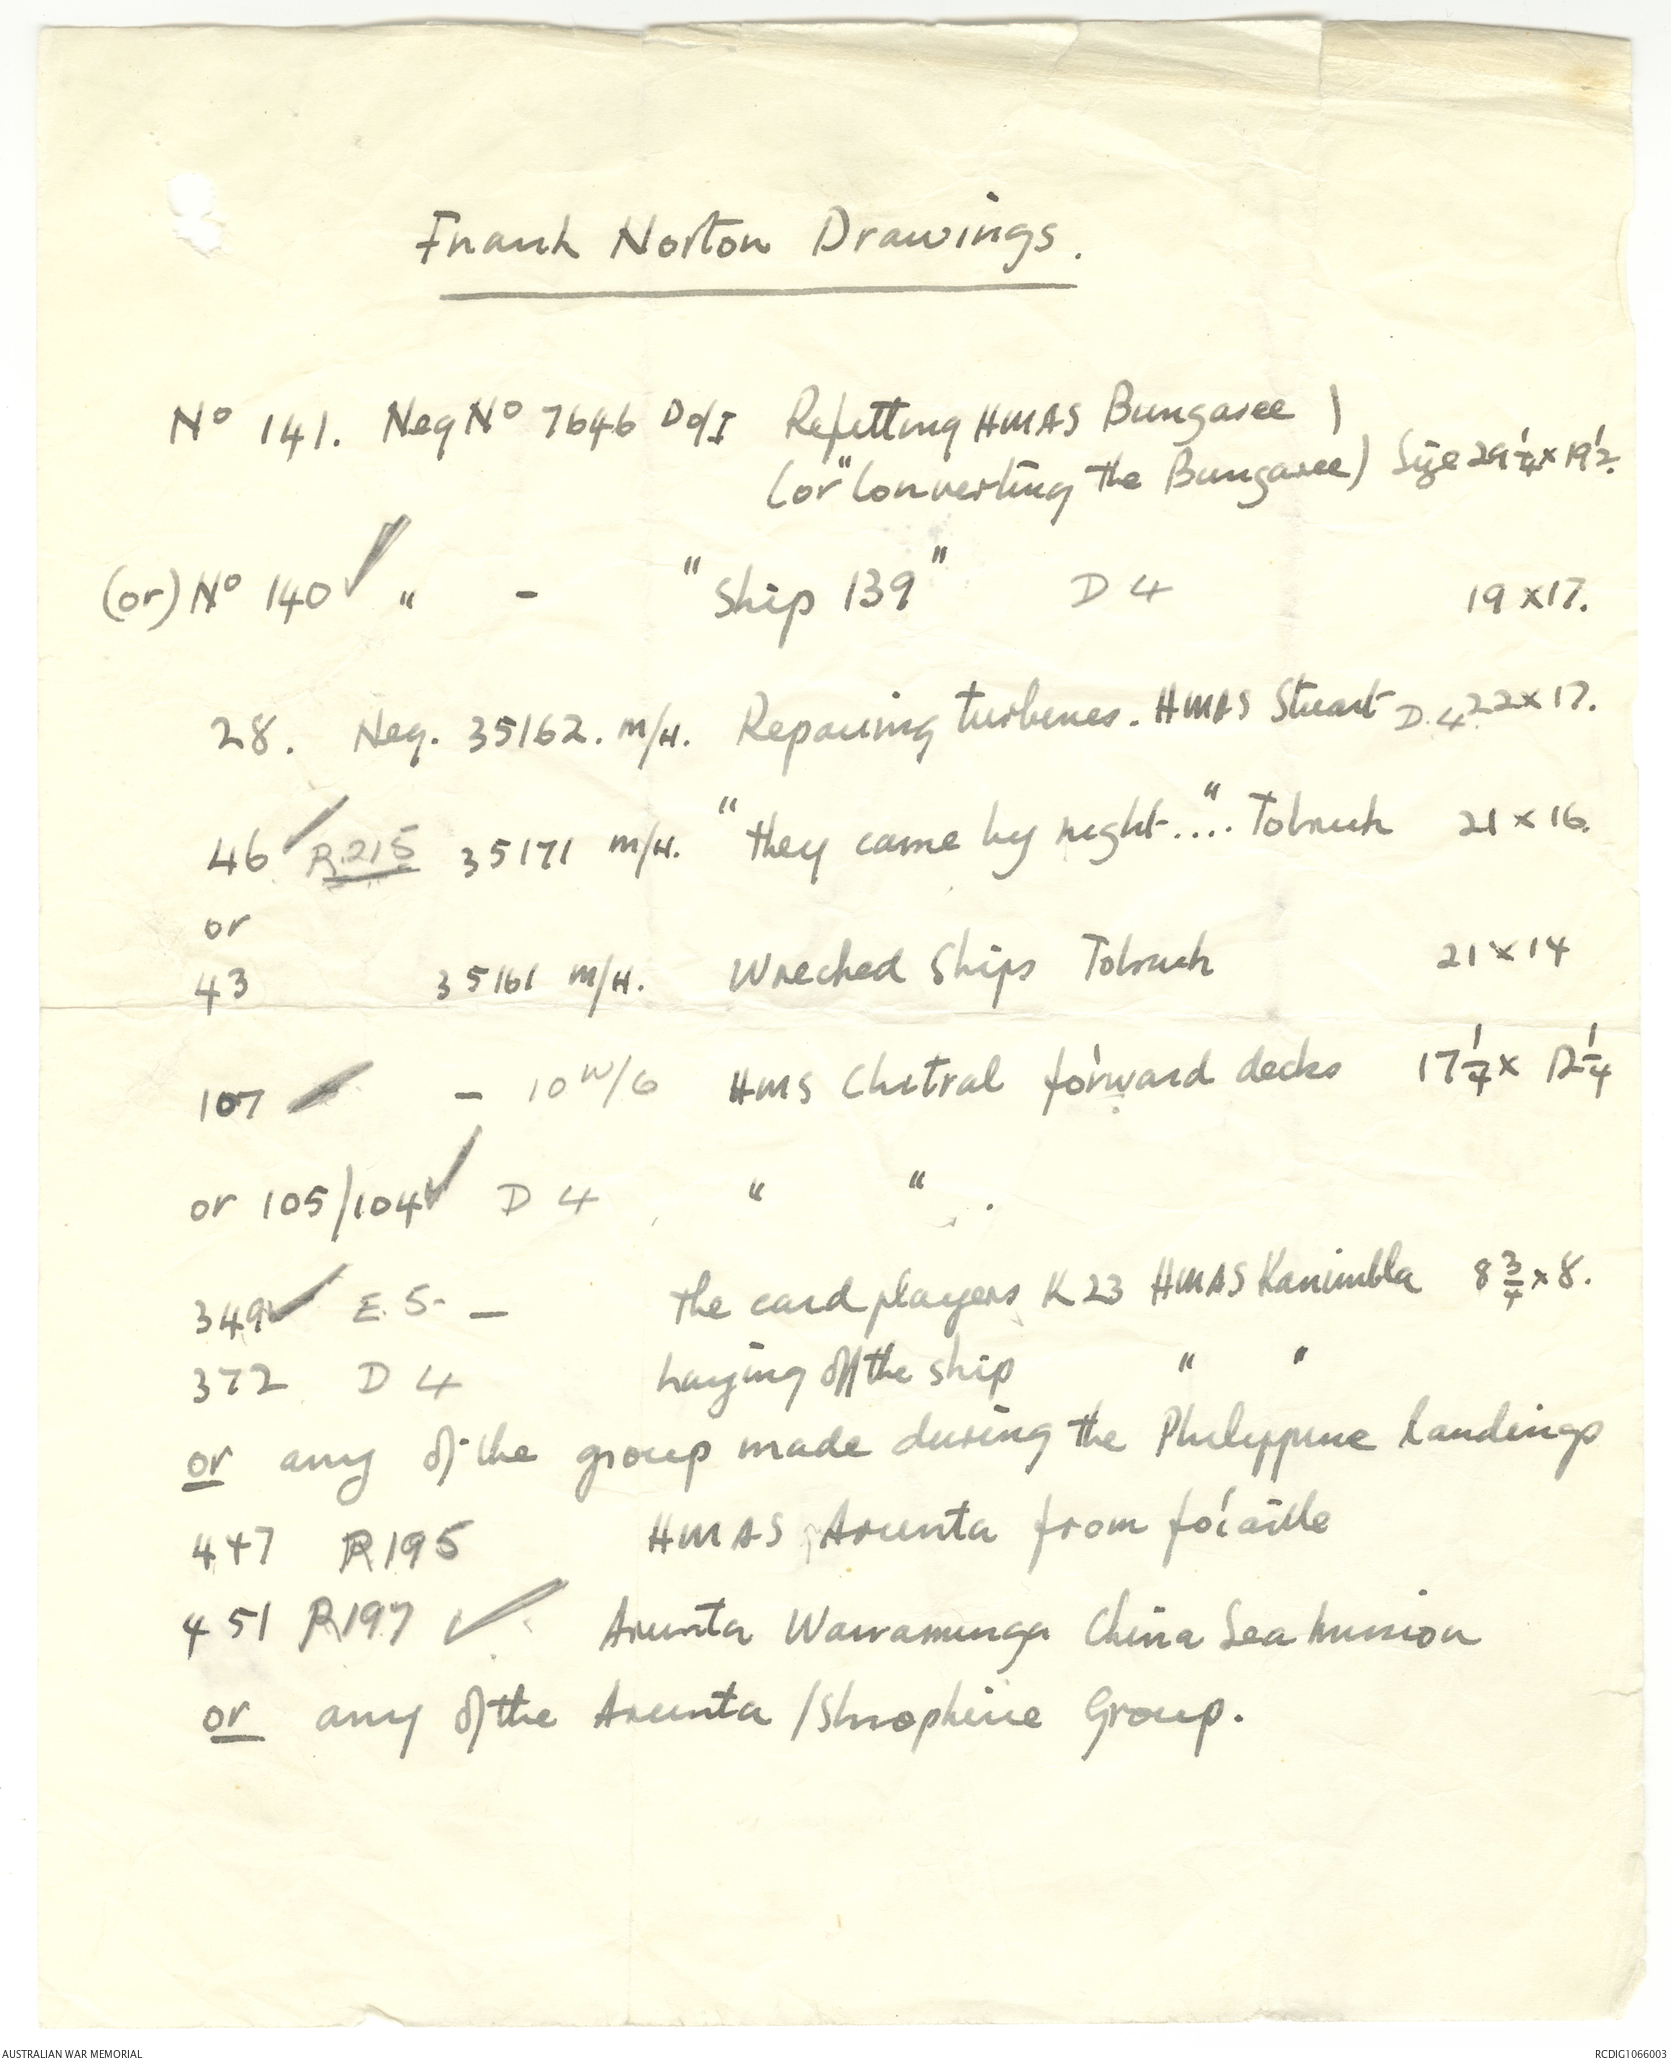 Frank Norton Drawings.
No 141. Neg No 7646 DofI Refitting HMAS Bungaree )
(or "Converting the Bungaree) Size 29 1/4 x 19 1/2.
(or) No 140 ✓ " - "Ship 139" D 4 19 x 17.
28. Neg. 35162. M/H. Repairing turbines. HMAS Stuart D.4. 22 x 17.
46 ✓ R215 35171 M/H. "they came by night...." Tobruk 21 x 16.
or
43 35161 M/H. Wrecked Ships Tobruk 21 x 14
107 ✓ - 10 W/G HMS Chitral for'ward decks 17 1/4 x 12 1/4
or 105/104 ✓ D 4 " " .
349 ✓ E. 5- — the card players K 23 HMAS Kanimbla 8 3/4 x 8.
372 D 4 Laying off the ship " "
or any of the group made during the Philippine landings
447 R195 HMAS Arunta from fo'castle
451 R197 ✓ Arunta Warramunga China Sea mission
or any of the Arunta / Shropshire Group.
AUSTRALIAN WAR MEMORIAL
RCDIG1066003